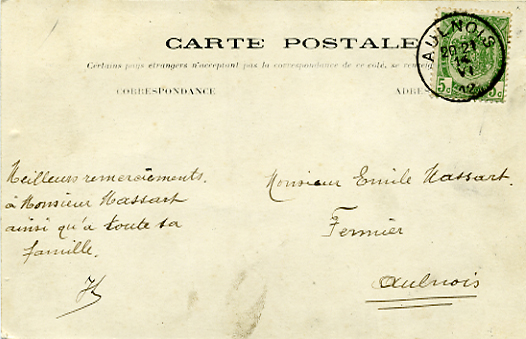 CARTE POSTALE
Certains pays étrangers n'acceptent pas la correspondance de ce côté, se
CORRESPONDANCE
ADRES
AULNOIS
5c 5c
Meilleurs remerciements.
à Monsieur Hassart
ainsi qu'à toute sa
famille.
Monsieur Emile Hassart.
Fermier
Aulnois